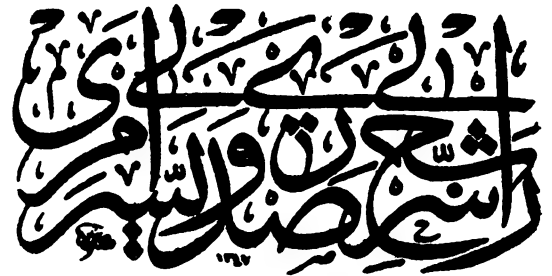 اشرح لي صدري ويسر لي امري